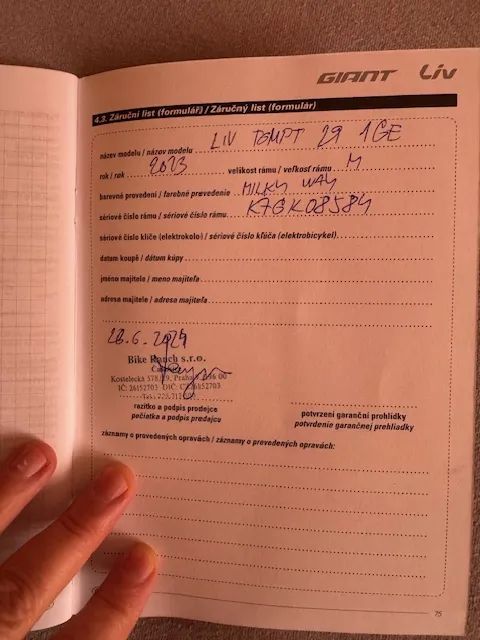 GIANT Liv
4.3. Záruční list (formulář) / Záručný list (formulár)
název modelu / názov modelu LIV TEMPT 29 1GE
rok / rok 2023 velikost rámu / veľkosť rámu M
barevné provedení / farebné prevedenie MILKY WAY
sériové číslo rámu / sériové číslo rámu K7GK08584
sériové číslo klíče (elektrokolo) / sériové číslo kľúča (elektrobicykel)
datum koupě / dátum kúpy
jméno majitele / meno majiteľa
adresa majitele / adresa majiteľa
28.6.2024
Bike Ranch s.r.o.
Kostelecká 578/29, Praha 9, 196 00
IČ: 26152703 DIČ: CZ26152703
razítko a podpis prodejce
pečiatka a podpis predajcu
potvrzení garanční prohlídky
potvrdenie garančnej prehliadky
záznamy o provedených opravách / záznamy o prevedených opravách:
75